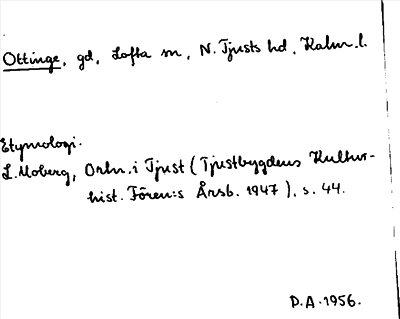 Ottinge, gd, Lofta sn, N. Tjusts hd, Kalm. l.
Etymologi.
L. Moberg, Ortn. i Tjust (Tjustbygdens Kultur-
hist. Fören:s Årsb. 1947), s. 44.
D.A. 1956.